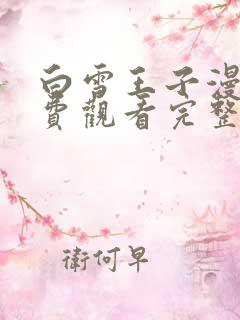 白雪王子漫
费觀看完整
衛何早